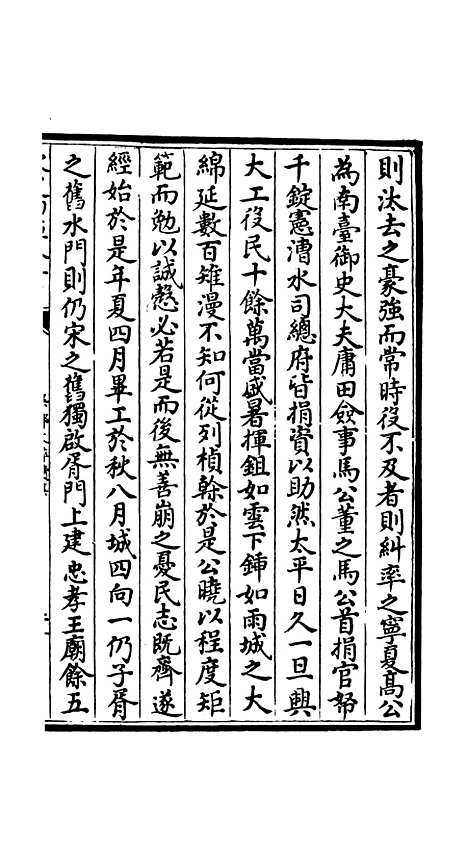 則汰去之豪強而常時役不及者則糾率之寧夏髙公
為南臺御史大夫庸田僉事馬公董之馬公首捐官帑
千錠憲漕水司總府皆捐資以助然太平日久一旦興
大工役民十餘萬當盛暑揮鉏如雲下鍤如雨城之大
綿延數百雉漫不知何從列楨榦於是公曉以程度矩
範而勉以誠慤必若是而後無善崩之憂民志既齊遂
經始於是年夏四月畢工於秋八月城四向一仍子胥
之舊水門則仍宋之舊獨啟胥門上建忠孝王廟餘五